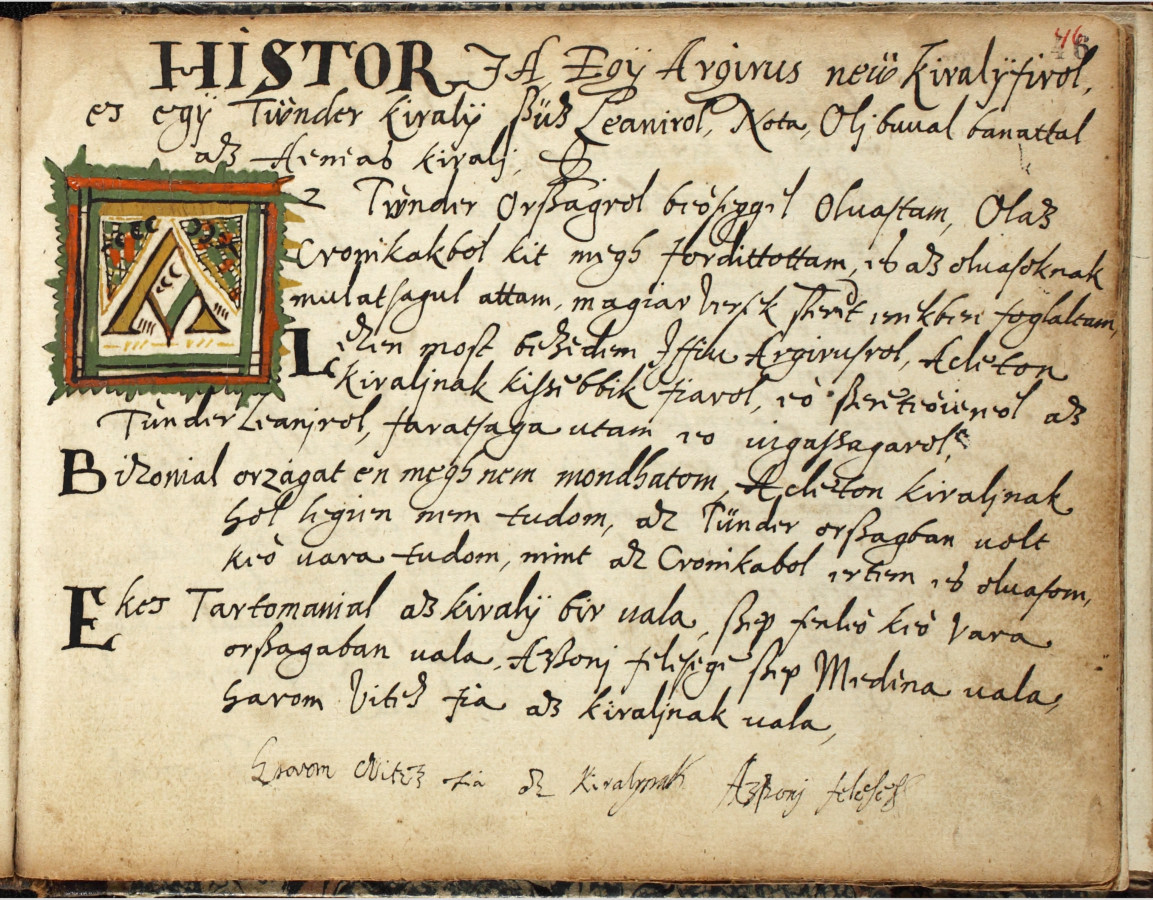 46
HISTORJA, Egÿ Argirus neuü Kiralÿfirol,
es egÿ Tünder Kiralÿ ßüz Leanirol, Nota, Olj buual banattal
az Aeneas kiralj,
Az Tünder Orßagrol beöseggel Oluastam, Olaz
Cronikakbol kit megh fordittottam, es az oluasoknak
mulatsagul attam, magiar Versek ßerent enekben foglaltam,
Lezen most bezedem Iffiu Argirusrol, Acleton
Kiraljnak kissebbik fiarol, eö ßereteöieröl az
Tünder Leanjrol, faratsaga utam eo uigaßagarol,
Bizonial orzagat en megh nem mondhatom, Acleton kiraljnak
hol legien nem tudom, az Tünder orßagban uolt
keö uara tudom, mint az Cronikabol ertem es oluasom,
Ekes Tartomanial az kiralÿ bir uala, ßep fenleö keö vara
orßagaban uala, Aßonj felesege ßep Medena uala,
harom Vitez fia az kiraljnak uala,
harom Vitez fia az Kiraljnak Aßonj feleseg